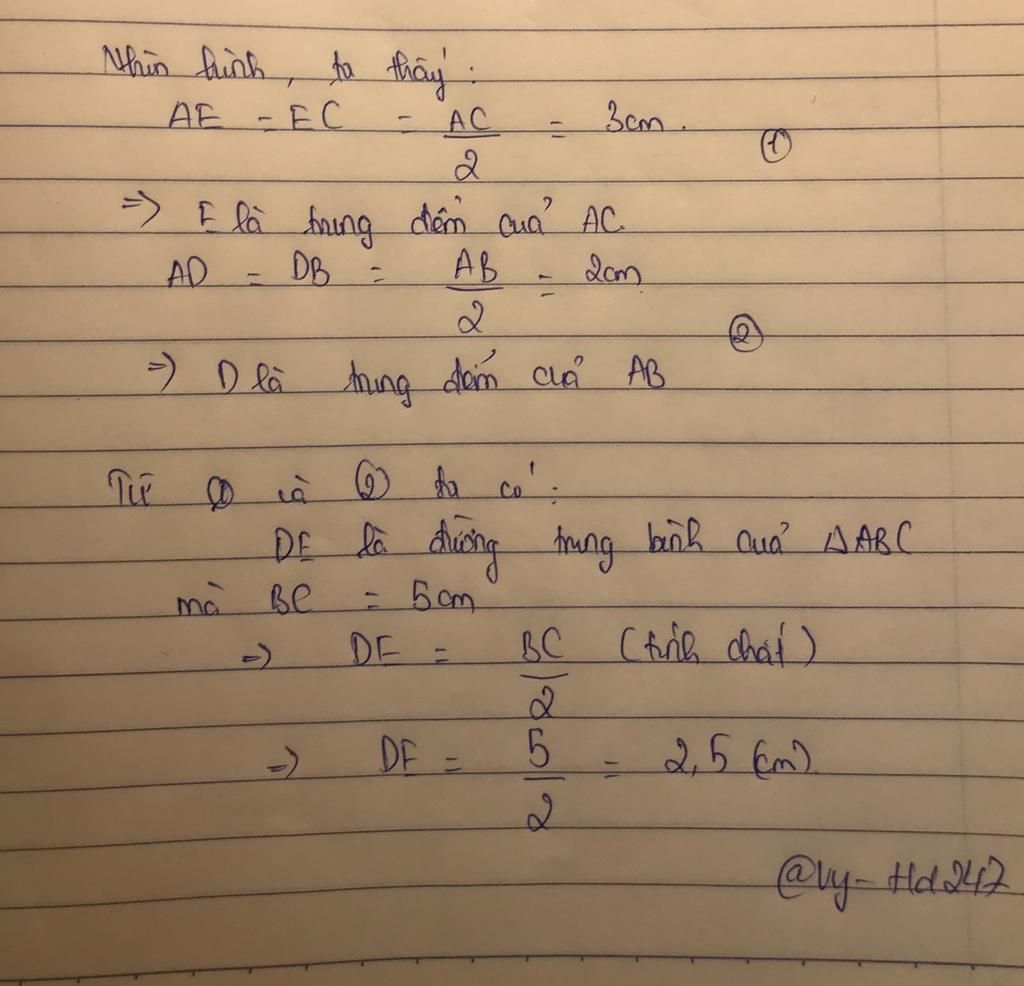 Nhìn hình, ta thấy:
AE = EC = AC/2 = 3cm. ①
=> E là trung điểm của AC
AD = DB = AB/2 = 2cm
②
=> D là trung điểm của AB
Từ ① và ② ta có:
DE là đường trung bình của ΔABC
mà BC = 5cm
=> DE = BC/2 (tính chất)
=> DE = 5/2 = 2,5 (cm)
@Vy-Hd247